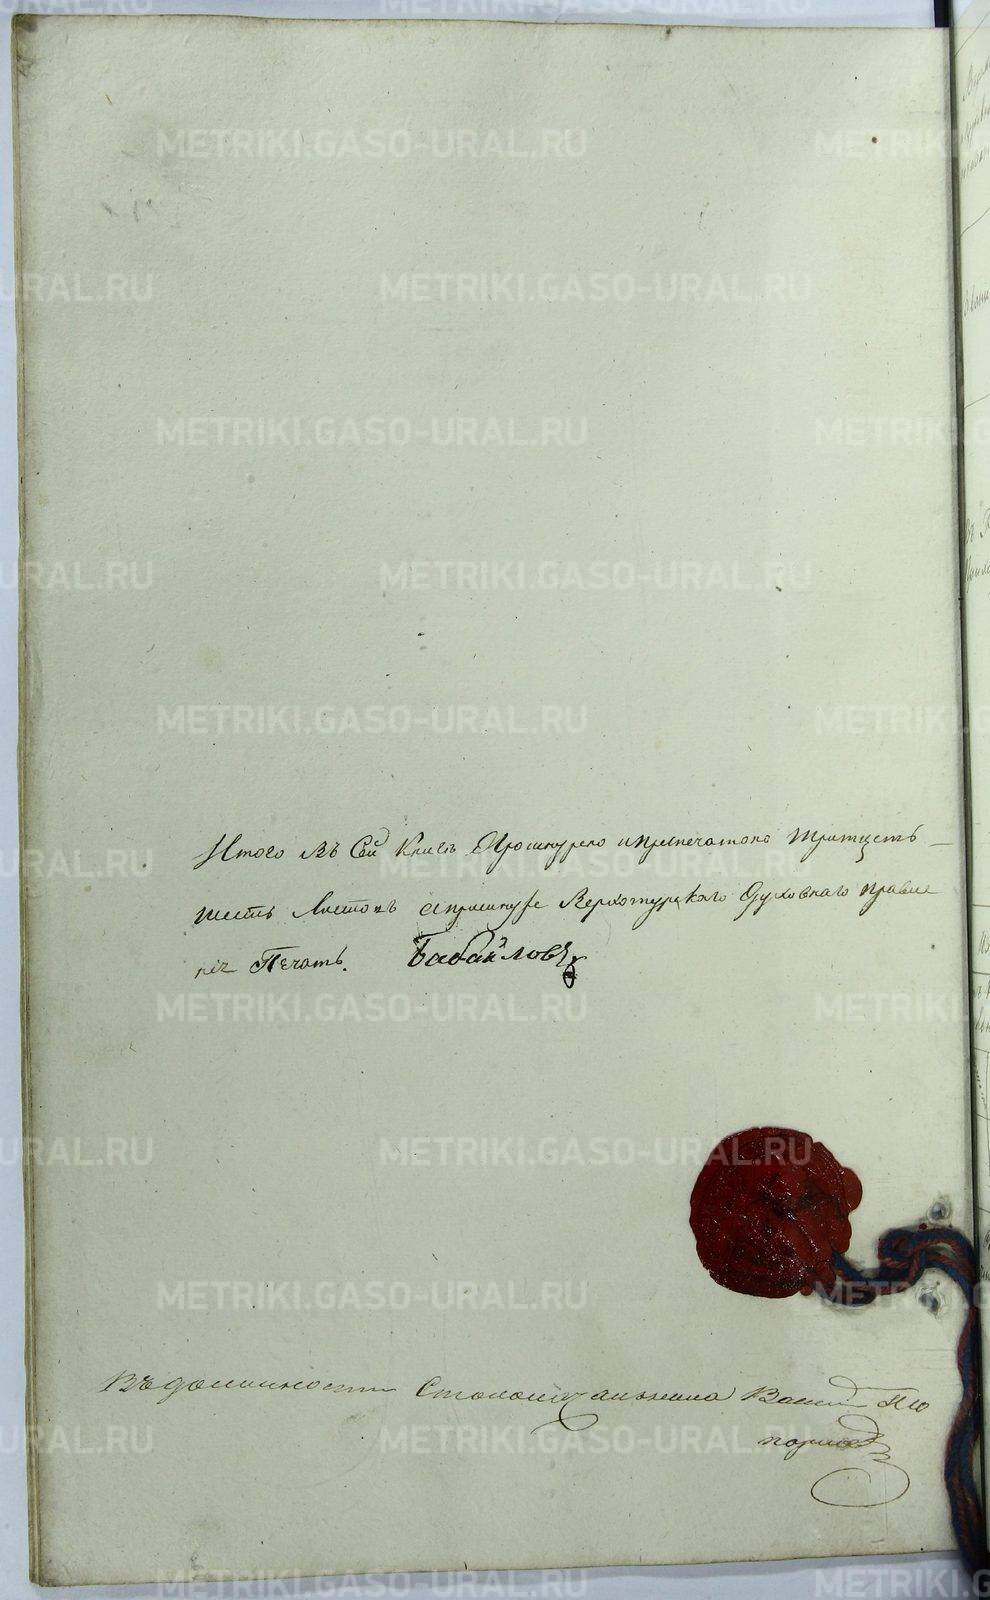 Итого въ сей Книгѣ Прошнурено ипрепечатоно тритцеть
шесть Листовъ ипришнуре Верхотурскаго Духовнаго правле
нія Печать. Бабайловъ
Въ должности Столоначальника Васил
METRIKI.GASO-URAL.RU